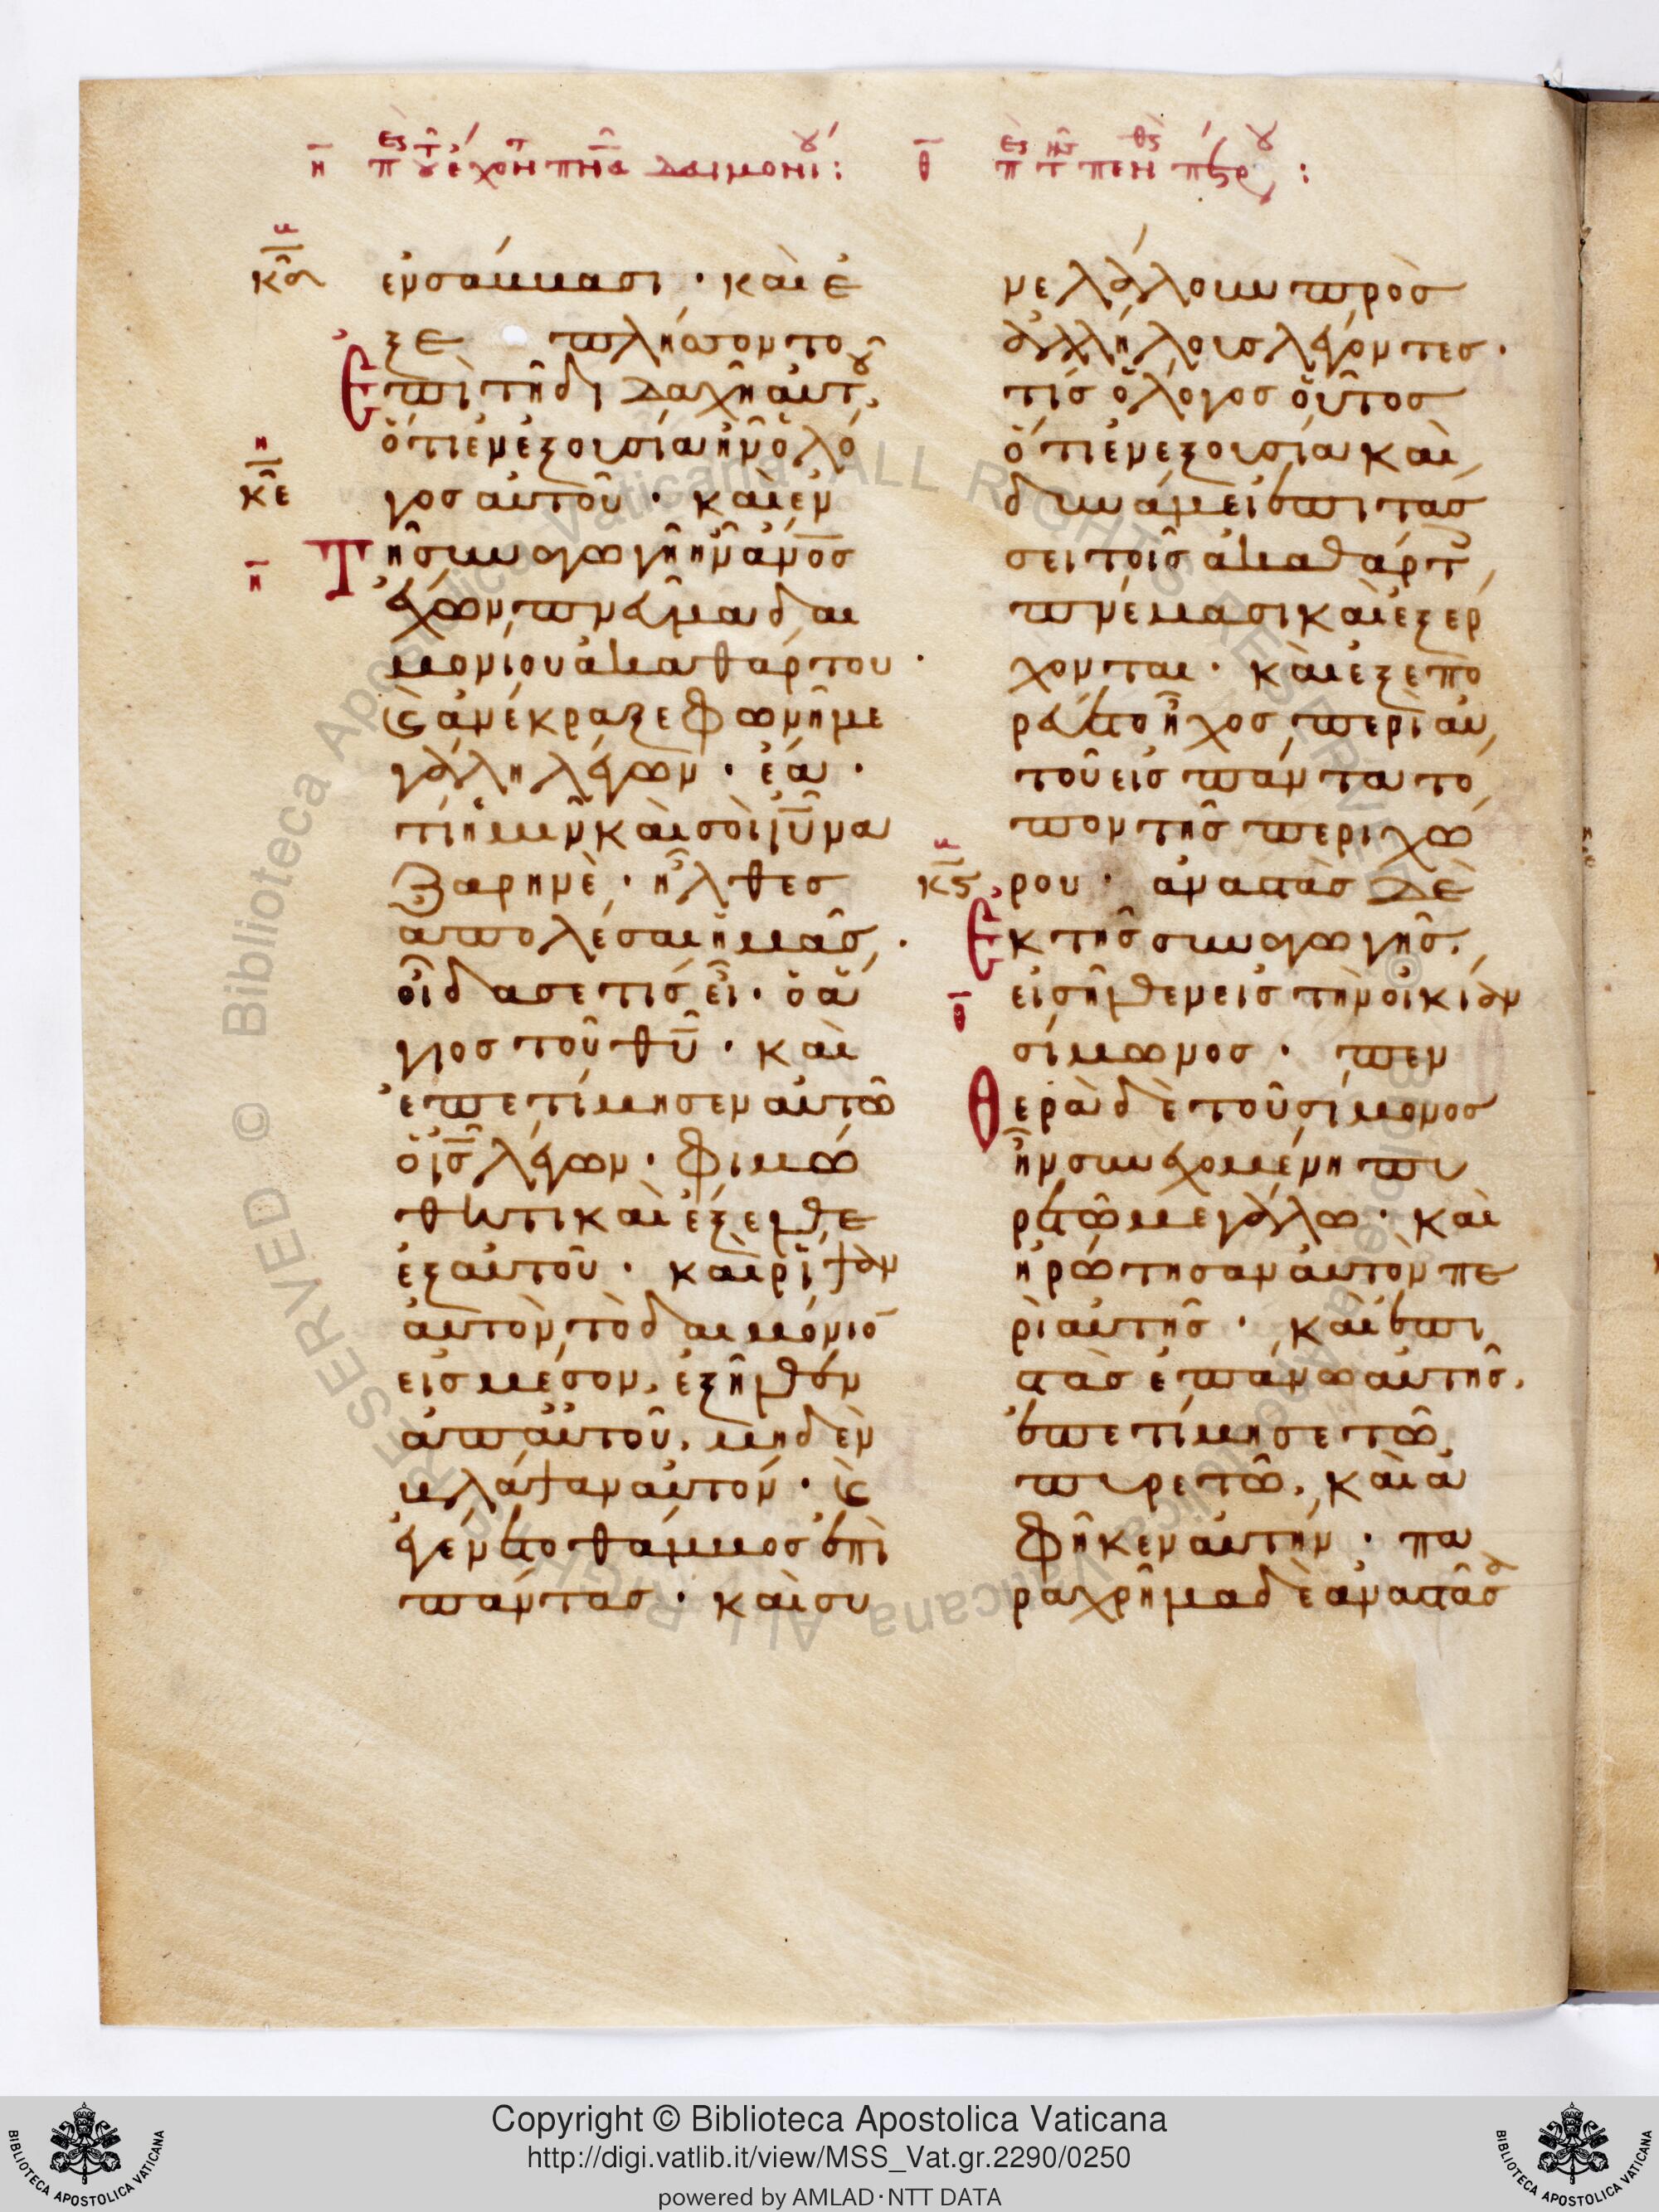 η̄ περὶ τοῦ ἔχοντος πν̅α δαιμονίου: θ̄ περὶ τῆς πενθερᾶς πέτρου:
κδ
ἐνσάββασι · καὶ ἐ
ξεπλήσσοντο
Ἐπὶ τῆ διδαχῆ αὐτοῦ,
ὅτι ἐν ἐξουσία ἦν ὁ λό
κε
γος αὐτοῦ · καὶ ἐν
η̄
Τῆ συναγωγῆ ἦν ἄν̅ο̅ς
ἔχων πνεῦμα δαι
μονίου ἀκαθάρτου ·
καὶ ἀνέκραξε φωνῆ με
γάλη λέγων · ἔα ·
τί ἡμῖν καὶ σοὶ ἰ̅υ̅ να
ζαρηνὲ · ἦλθες
ἀπολέσαι ἡμᾶς ·
οἶδα σε τίς εἶ · ὁ ἅ
γιος τοῦ θ̅υ̅ · καὶ
ἐπετίμησεν αὐτῶ
ὁ ἰ̅ς̅ λέγων · φιμώ
θητι καὶ ἔξελθε
ἐξ αὐτοῦ · καὶ ρίψαν
αὐτὸν τὸ δαιμόνιο̅
εἰς μέσον, ἐξῆλθεν
ἀπ αὐτοῦ, μηδὲν
βλάψαν αὐτόν · καὶ
ἐγένετο θάμβος ἐπὶ
πάντας · καὶ συ
νελάλουν πρὸς
ἀλλήλους λέγοντες ·
τίς ὁ λόγος οὗτος
ὅτι ἐν ἐξουσία καὶ
δυνάμει ἐπιτάσ
σει τοῖς ἀκαθάρτοις
πνεύμασι καὶ ἐξέρ
χονται · καὶ ἐξεπο
ρεύετο ἦχος περὶ αὐ
τοῦ εἰς πάντα τό
πον τῆς περιχώ
κς
ρου · ἀναστὰς δὲ
Ἐκ τῆς συναγωγῆς,
εἰσῆλθεν εἰς τὴν οἰκίαν
θ̄
σίμωνος · πεν
Θερὰ δὲ τοῦ σίμονος
ἦν συνεχομένη πυ
ρετῶ μεγάλω · καὶ
ἠρώτησαν αὐτὸν πε
ρὶ αὐτῆς · καὶ ἐπι
στὰς ἐπάνω αὐτῆς,
ἐπετίμησε τῶ
πυρετῶ, καὶ ἀ
φῆκεν αὐτήν · πα
ραχρῆμα δὲ ἀναστᾶσα
Copyright © Biblioteca Apostolica Vaticana
http://digi.vatlib.it/view/MSS_Vat.gr.2290/0250
powered by AMLAD·NTT DATA
BIBLIOTECA APOSTOLICA VATICANA
BIBLIOTECA APOSTOLICA VATICANA
© Biblioteca Apostolica Vaticana ALL RIGHTS RESERVED
© Biblioteca Apostolica Vaticana ALL RIGHTS RESERVED